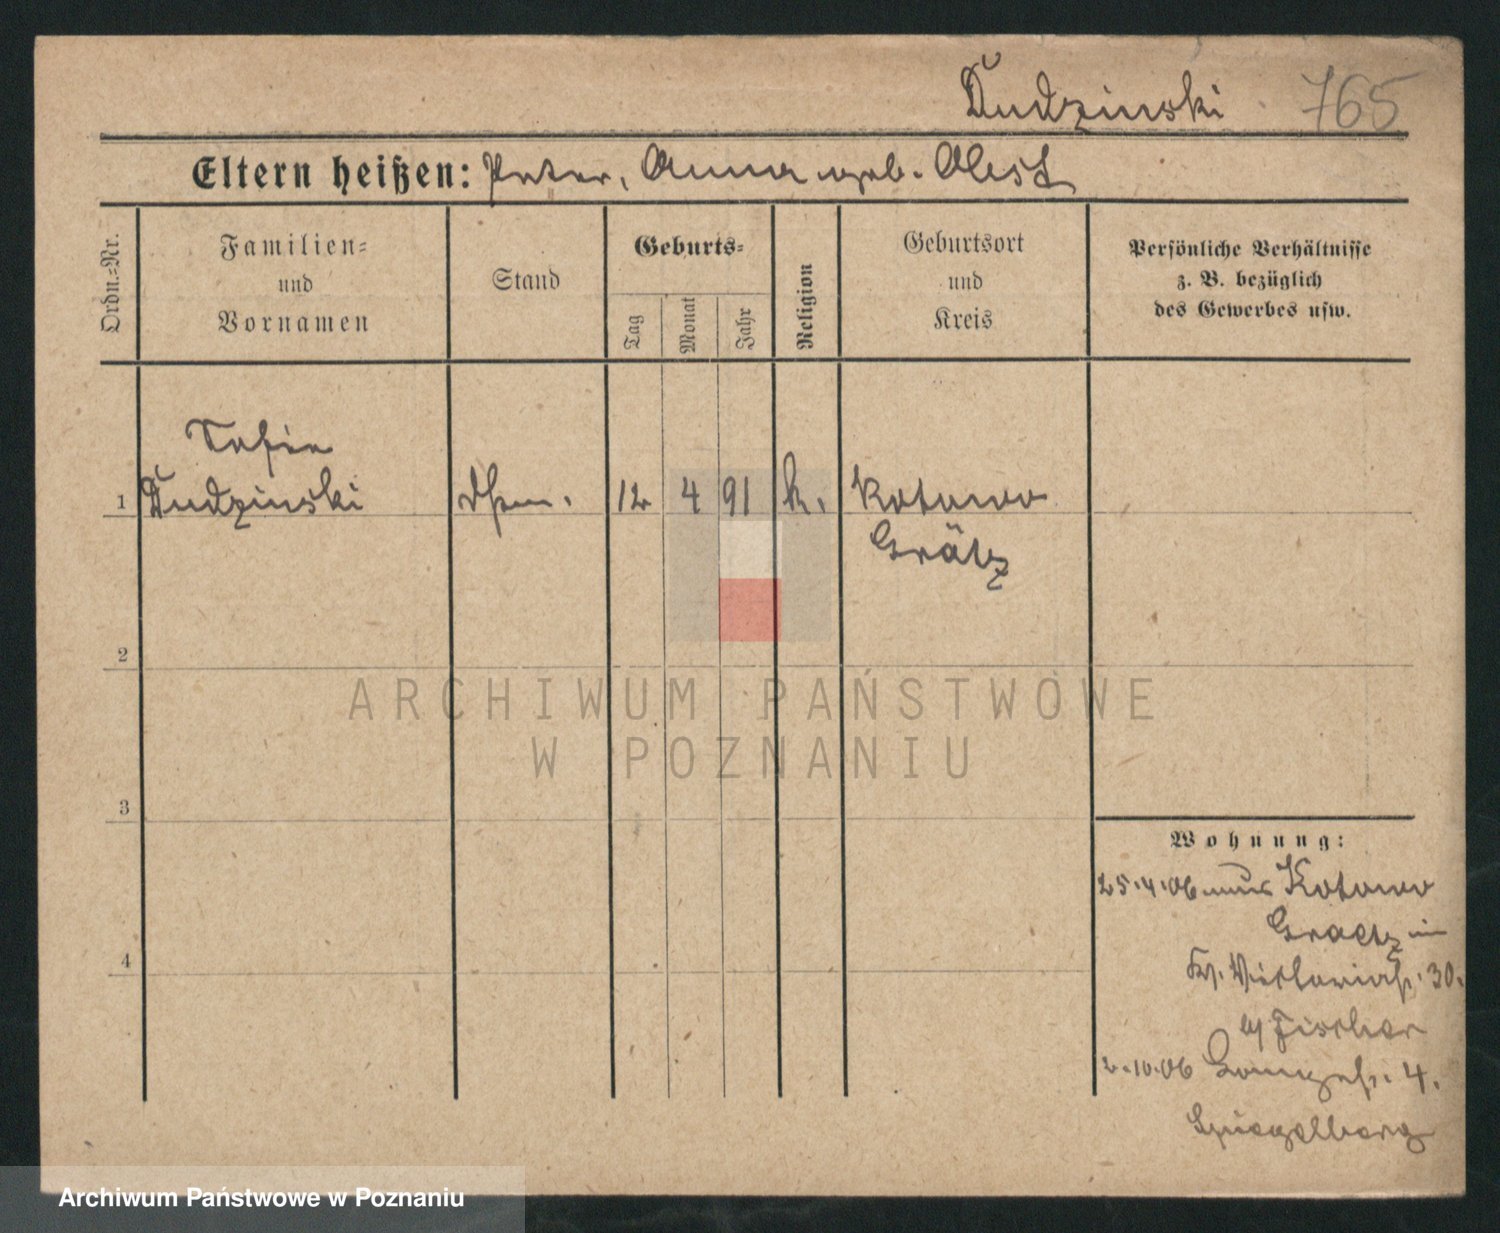 Dudzinski 765
Eltern heißen: Peter, Anna geb. Olest
Ordn.=Nr.
Familien=
und
Vornamen
Stand
Geburts=
Tag
Monat
Jahr
Religion
Geburtsort
und
Kreis
Persönliche Verhältnisse
z. B. bezüglich
des Gewerbes usw.
Sofie
1 Dudzinski 12 4 91 k. Kotowo
Grätz
2
3
4
Wohnung:
25.4.06 aus Kotowo
Graetz in
Viktoriastr. 30.
b/ Fischer
2.10.06 4.
Spiegelberg
ARCHIWUM PAŃSTWOWE
W POZNANIU
Archiwum Państwowe w Poznaniu